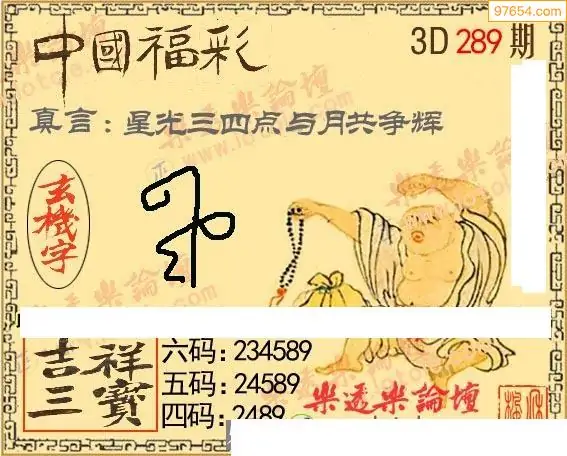 97654.com
中國福彩
3D 289 期
真言：星光三四点与月共争辉
玄機字
吉祥
三寶
六码：234589
五码：24589
四码：2489
樂透樂論壇